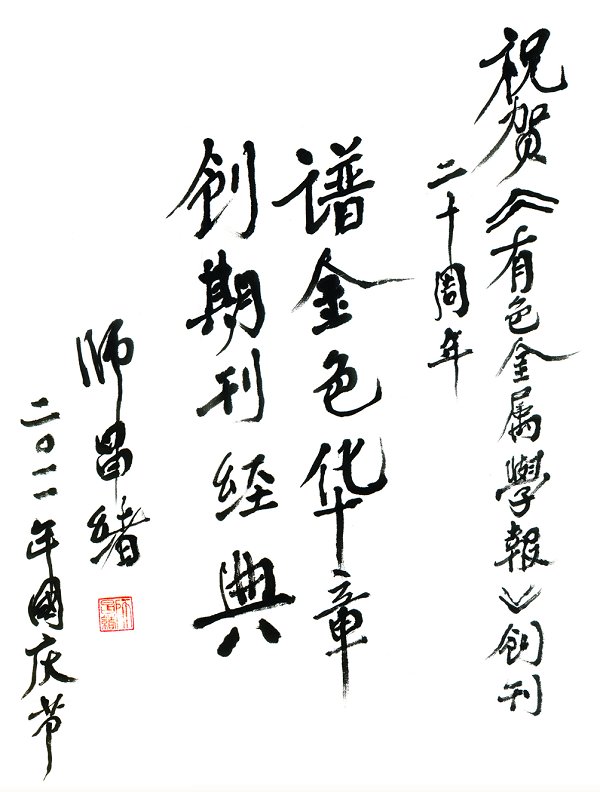 祝贺《有色金属學報》创刊
二十周年
谱金色华章
创期刊经典
师昌绪
二〇一一年國庆节